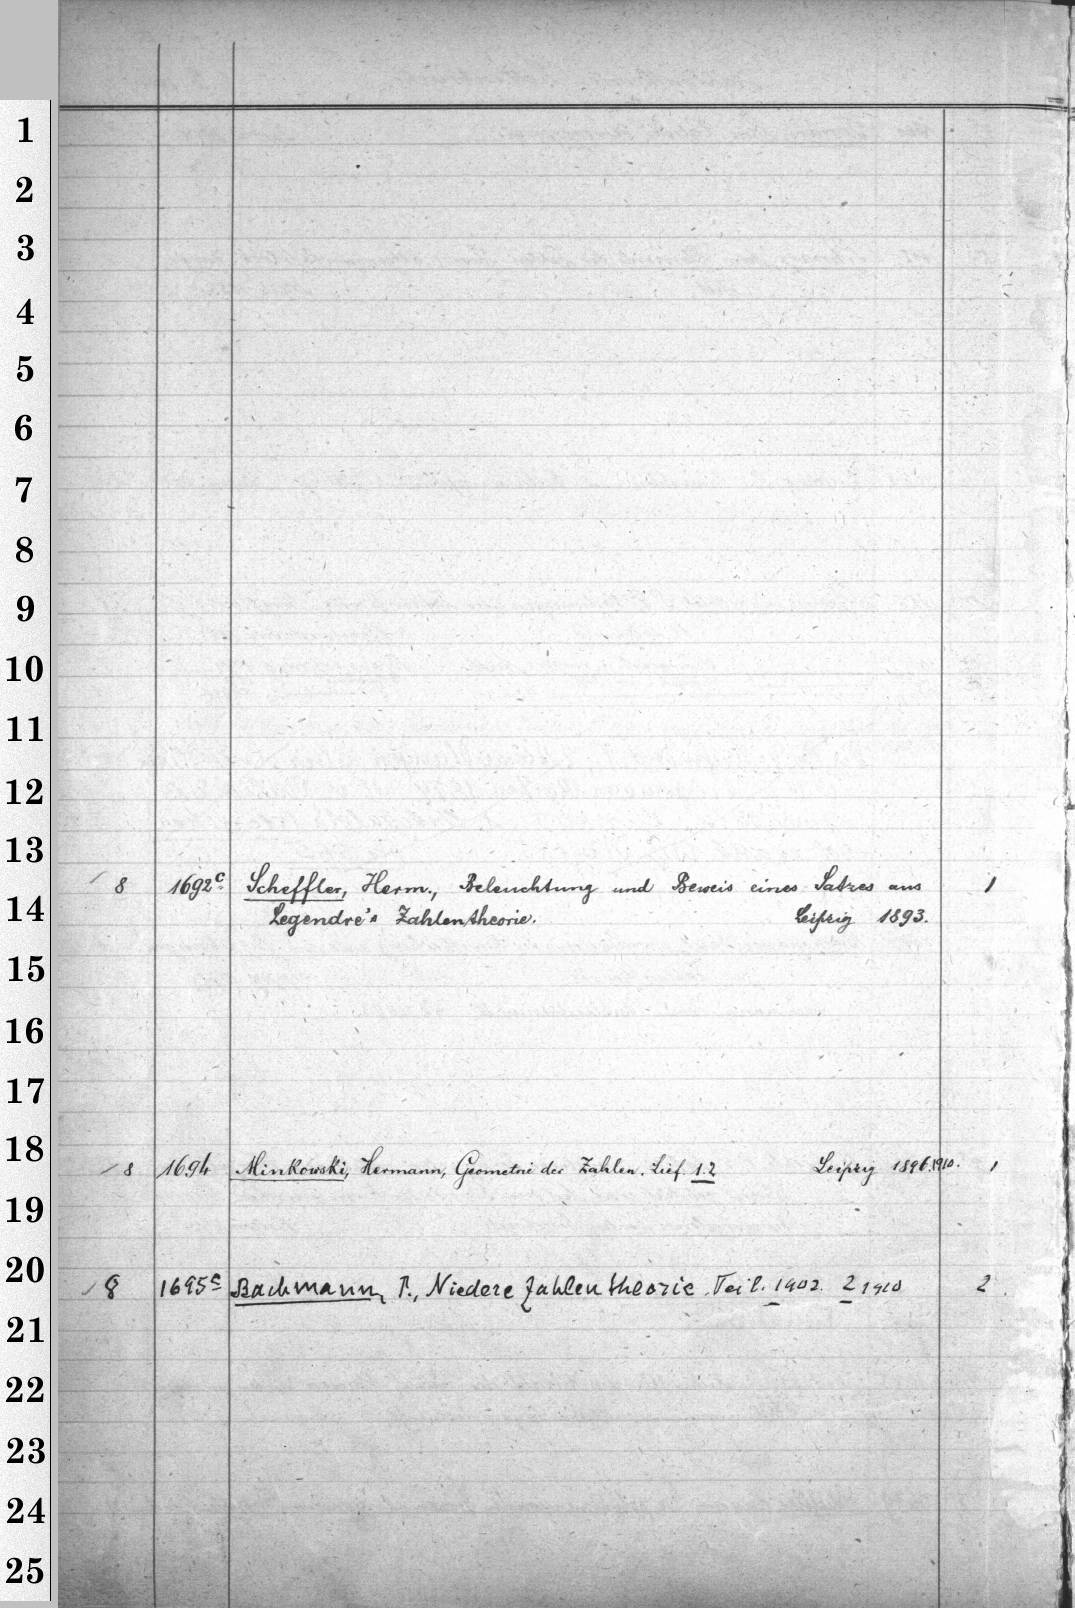 1
2
3
4
5
6
7
8
9
10
11
12
13
8 1692c Scheffler, Herm., Beleuchtung und Beweis eines Satzes aus 1
14 Legendre's Zahlentheorie. Leipzig 1893.
15
16
17
18
8 1694 Minkowski, Hermann, Geometrie der Zahlen. Lief. 1.2 Leipzig 1896.1910. 1
19
20
8 1695c Bachmann, P., Niedere Zahlentheorie. Teil. 1902. 2 1910 2
21
22
23
24
25